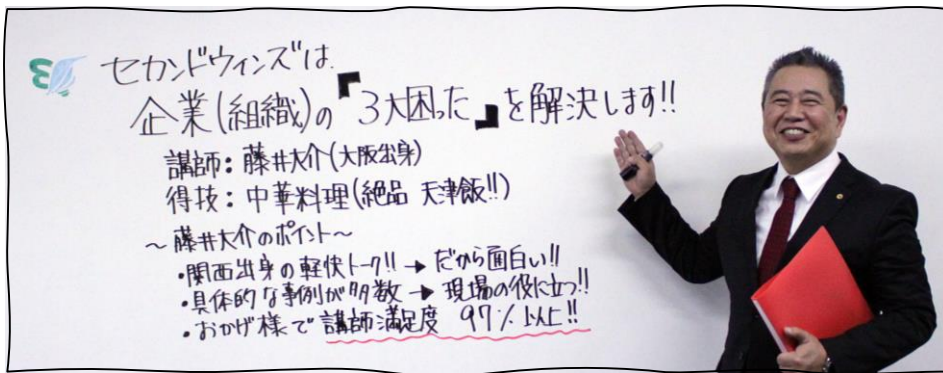 セカンドウィンズは
企業(組織)の『3大困った』を解決します!!
講師:藤井大介(大阪出身)
得技:中華料理(絶品 天津飯!!)
~藤井大介のポイント~
・関西出身の軽快トーク!!→だから面白い!!
・具体的な事例が多数→現場の役に立つ!!
・おかげ様で講師満足度 97%以上!!